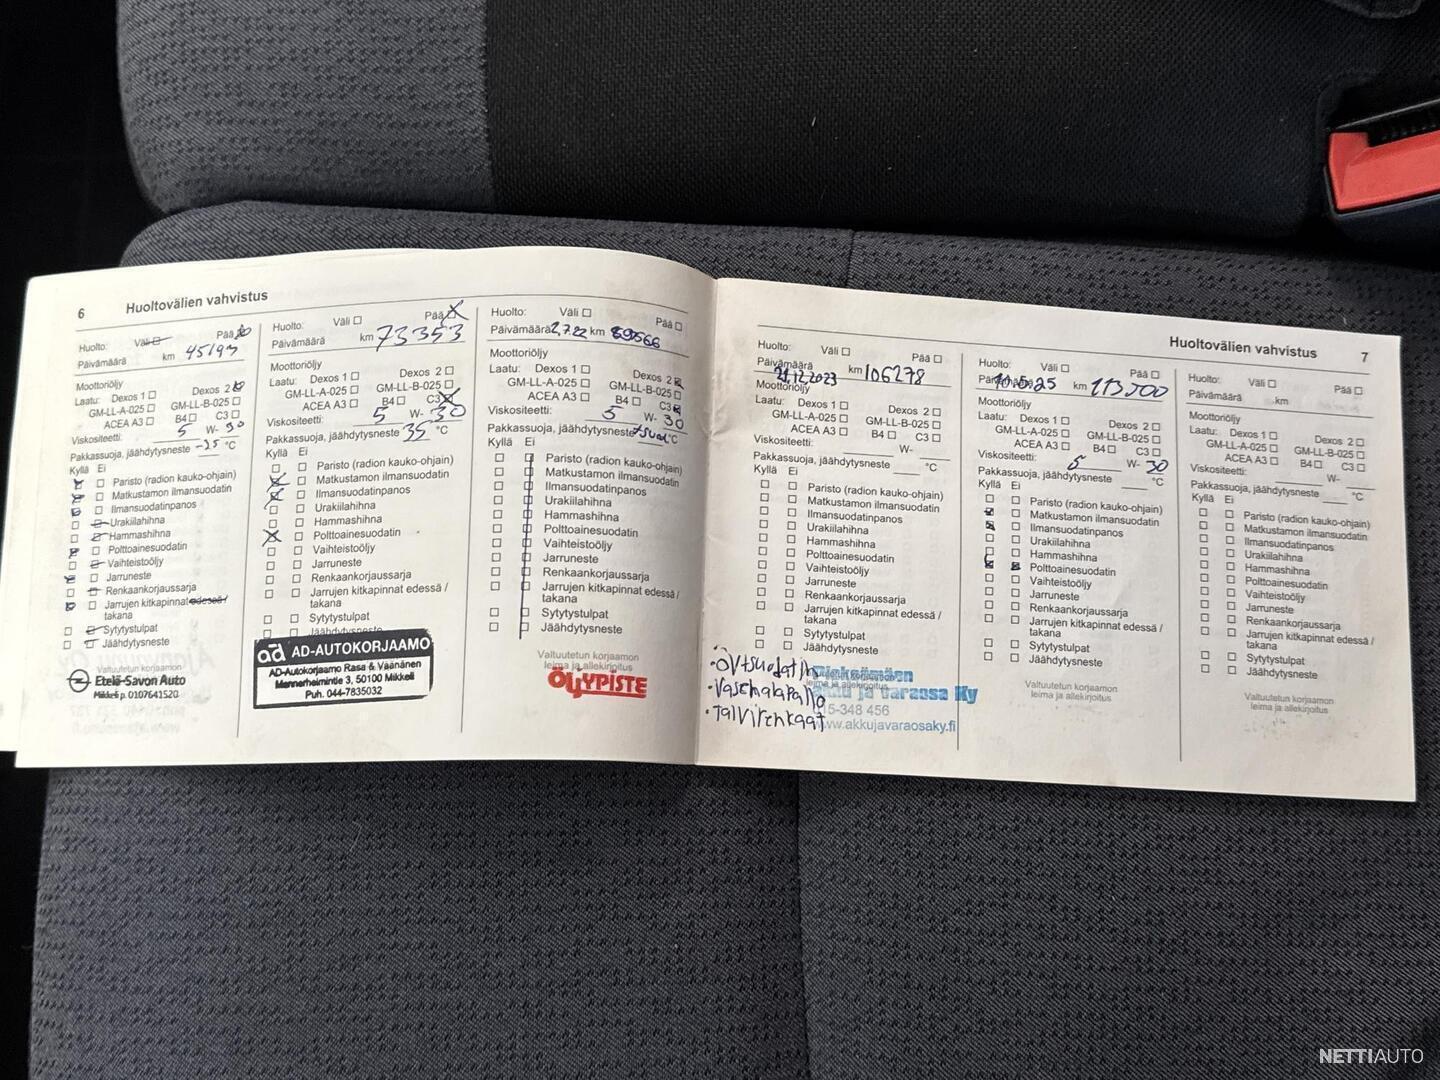 6
Huoltovälien vahvistus
Huolto: Väli Pää
Päivämäärä km 45193
Moottoriöljy
Laatu: Dexos 1 Dexos 2
GM-LL-A-025 GM-LL-B-025
ACEA A3 B4 C3
Viskositeetti: 5 W- 30
Pakkassuoja, jäähdytysneste -25 °C
Kyllä Ei
Paristo (radion kauko-ohjain)
Matkustamon ilmansuodatin
Ilmansuodatinpanos
Urakiilahihna
Hammashihna
Polttoainesuodatin
Vaihteistoöljy
Jarruneste
Renkaankorjaussarja
Jarrujen kitkapinnat edessä /
takana
Sytytystulpat
Jäähdytysneste
Valtuutetun korjaamon
Etelä-Savon Auto
Mikkeli p. 0107641520
Huolto: Väli Pää
Päivämäärä km 73353
Moottoriöljy
Laatu: Dexos 1 Dexos 2
GM-LL-A-025 GM-LL-B-025
ACEA A3 B4 C3
Viskositeetti: 5 W- 30
Pakkassuoja, jäähdytysneste 35 °C
Kyllä Ei
Paristo (radion kauko-ohjain)
Matkustamon ilmansuodatin
Ilmansuodatinpanos
Urakiilahihna
Hammashihna
Polttoainesuodatin
Vaihteistoöljy
Jarruneste
Renkaankorjaussarja
Jarrujen kitkapinnat edessä /
takana
Sytytystulpat
Jäähdytysneste
ad AD-AUTOKORJAAMO
AD-Autokorjaamo Rasa & Väänänen
Mannerheimintie 3, 50100 Mikkeli
Puh. 044-7835032
Huolto: Väli Pää
Päivämäärä 2.7.22 km 89566
Moottoriöljy
Laatu: Dexos 1 Dexos 2
GM-LL-A-025 GM-LL-B-025
ACEA A3 B4 C3
Viskositeetti: 5 W- 30
Pakkassuoja, jäähdytysneste °C
Kyllä Ei
Paristo (radion kauko-ohjain)
Matkustamon ilmansuodatin
Ilmansuodatinpanos
Urakiilahihna
Hammashihna
Polttoainesuodatin
Vaihteistoöljy
Jarruneste
Renkaankorjaussarja
Jarrujen kitkapinnat edessä /
takana
Sytytystulpat
Jäähdytysneste
Valtuutetun korjaamon
leima ja allekirjoitus
ÖLJYPISTE
Huoltovälien vahvistus
7
Huolto: Väli Pää
Päivämäärä 21.12.2023 km 106278
Moottoriöljy
Laatu: Dexos 1 Dexos 2
GM-LL-A-025 GM-LL-B-025
ACEA A3 B4 C3
Viskositeetti: W-
Pakkassuoja, jäähdytysneste °C
Kyllä Ei
Paristo (radion kauko-ohjain)
Matkustamon ilmansuodatin
Ilmansuodatinpanos
Urakiilahihna
Hammashihna
Polttoainesuodatin
Vaihteistoöljy
Jarruneste
Renkaankorjaussarja
Jarrujen kitkapinnat edessä /
takana
Sytytystulpat
Jäähdytysneste
leima ja allekirjoitus
ja Varaosa Ky
15-348 456
www.akkujavaraosaky.fi
• talvirenkaat
Huolto: Väli Pää
Päivämäärä 10.5.25 km 113500
Moottoriöljy
Laatu: Dexos 1 Dexos 2
GM-LL-A-025 GM-LL-B-025
ACEA A3 B4 C3
Viskositeetti: 5 W- 30
Pakkassuoja, jäähdytysneste °C
Kyllä Ei
Paristo (radion kauko-ohjain)
Matkustamon ilmansuodatin
Ilmansuodatinpanos
Urakiilahihna
Hammashihna
Polttoainesuodatin
Vaihteistoöljy
Jarruneste
Renkaankorjaussarja
Jarrujen kitkapinnat edessä /
takana
Sytytystulpat
Jäähdytysneste
Valtuutetun korjaamon
leima ja allekirjoitus
Huolto: Väli Pää
Päivämäärä km
Moottoriöljy
Laatu: Dexos 1 Dexos 2
GM-LL-A-025 GM-LL-B-025
ACEA A3 B4 C3
Viskositeetti: W-
Pakkassuoja, jäähdytysneste °C
Kyllä Ei
Paristo (radion kauko-ohjain)
Matkustamon ilmansuodatin
Ilmansuodatinpanos
Urakiilahihna
Hammashihna
Polttoainesuodatin
Vaihteistoöljy
Jarruneste
Renkaankorjaussarja
Jarrujen kitkapinnat edessä /
takana
Sytytystulpat
Jäähdytysneste
Valtuutetun korjaamon
leima ja allekirjoitus
NETTIAUTO